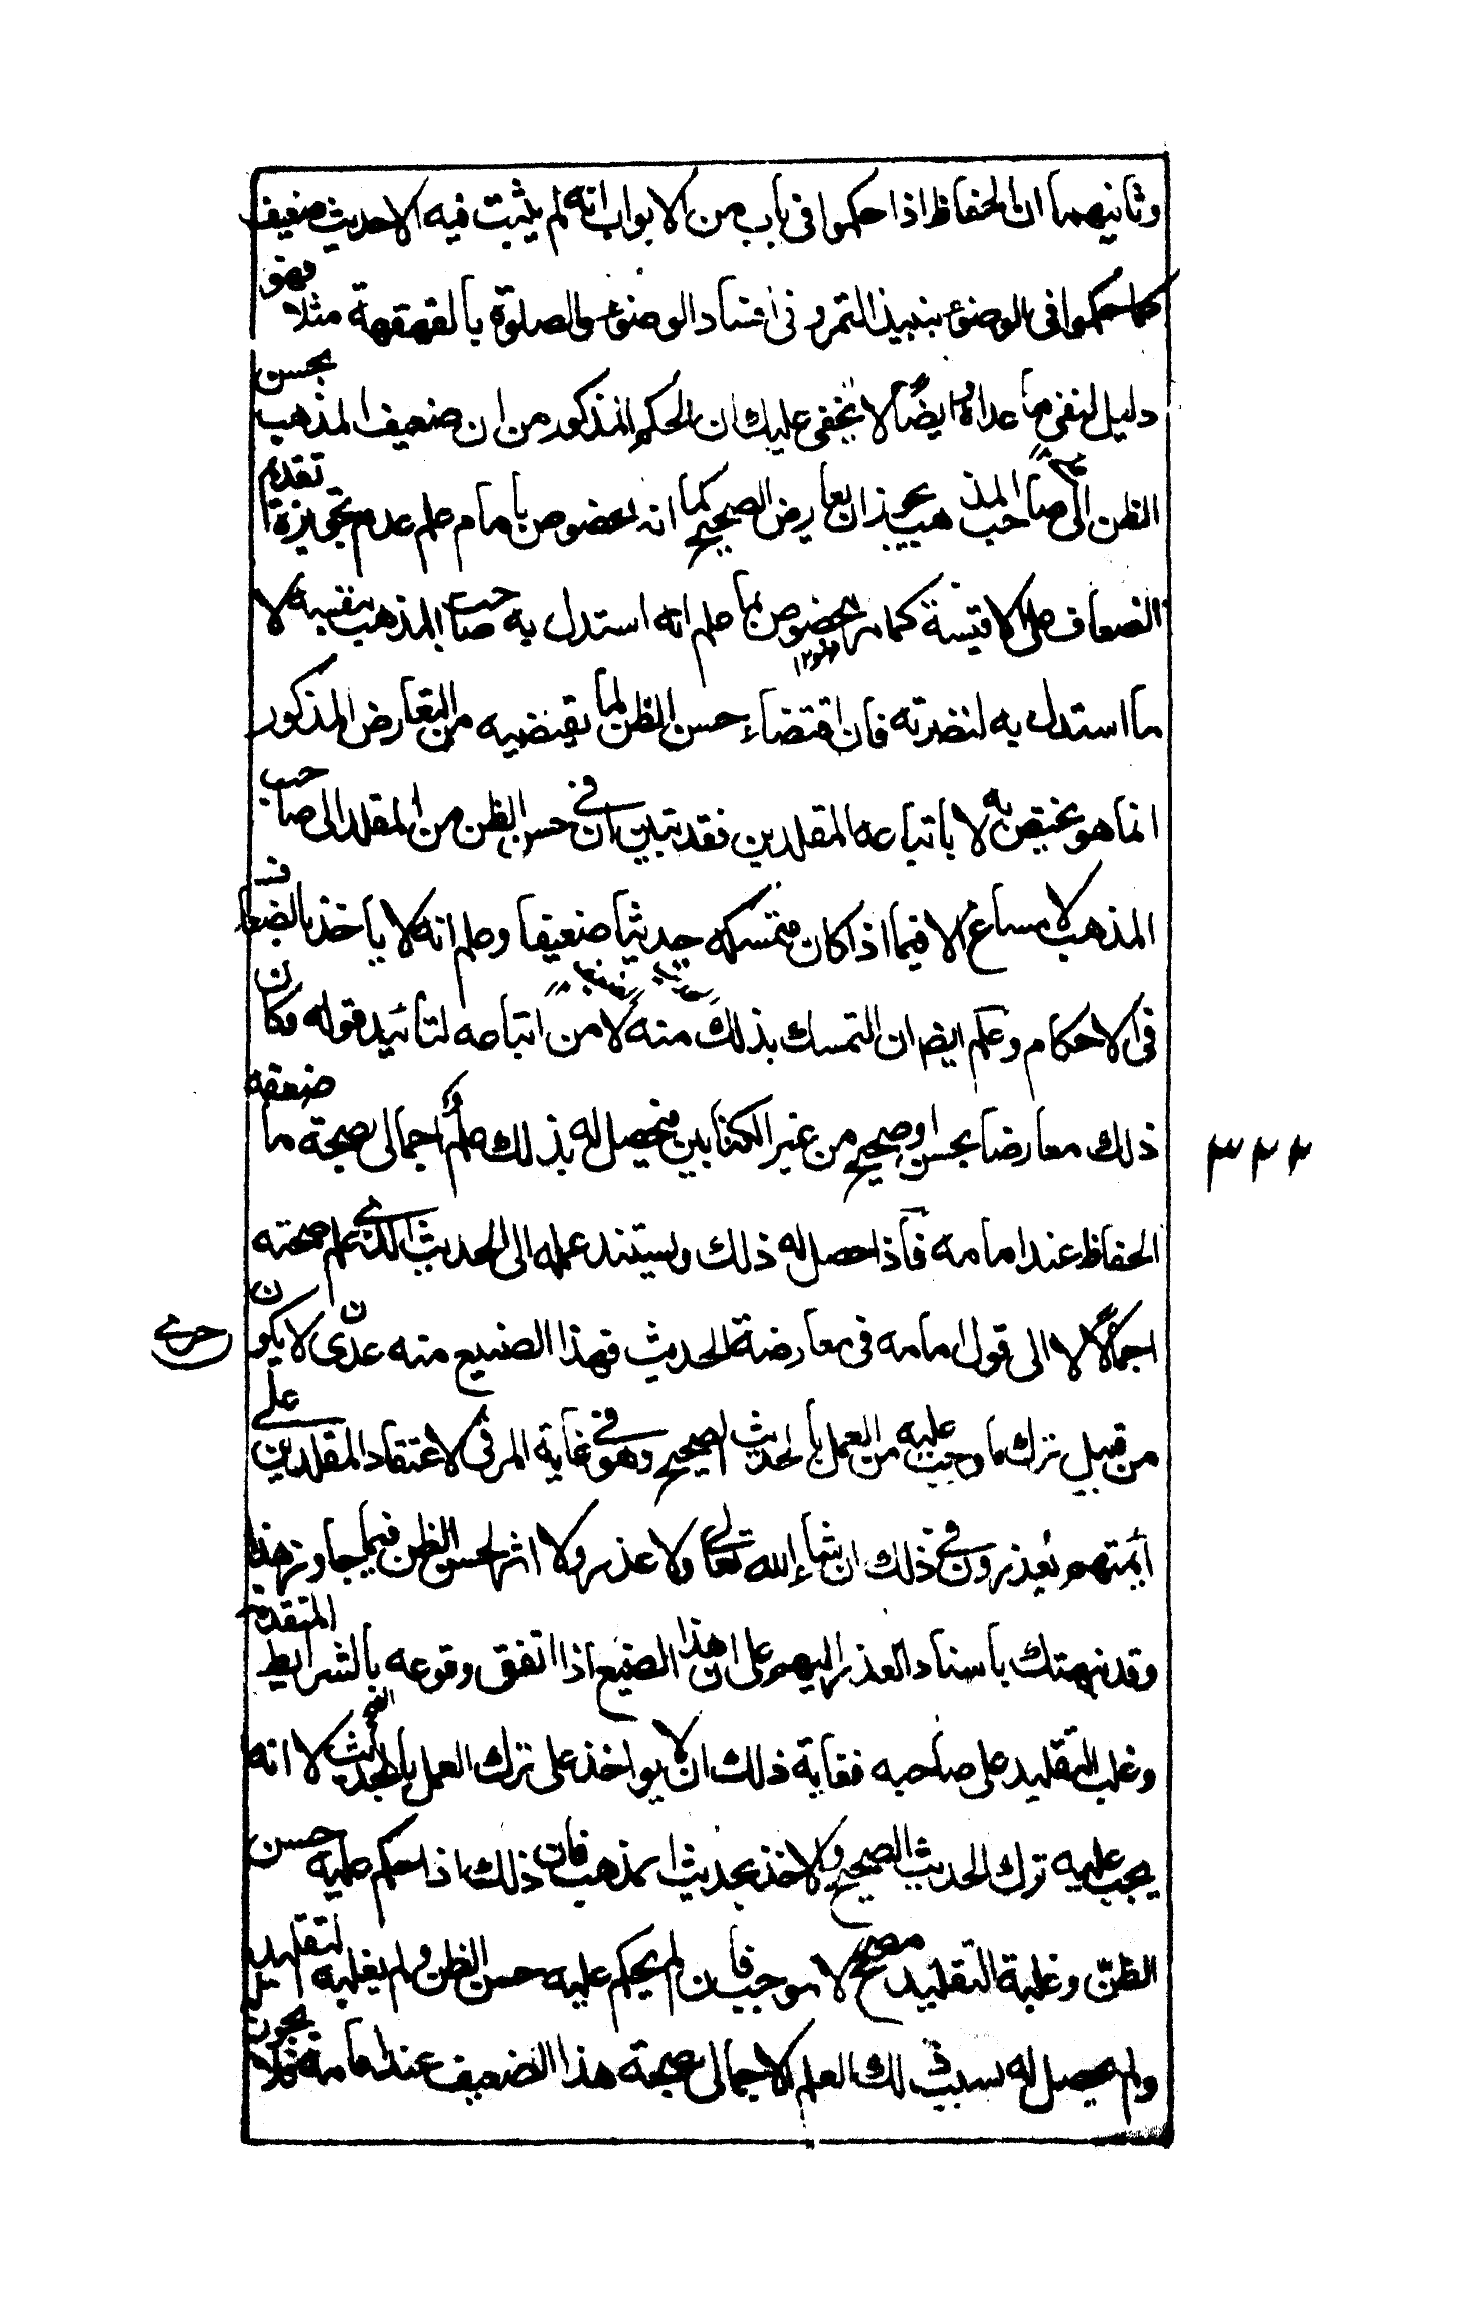 وثانيهما ان الحفاظ اذا حكموا في باب من الابواب انه لم يثبت فيه الا حديث ضعيف
كما حكموا في الوضوء بنبيذ التمر وفي افساد الوضوء والصلوة بالقهقهة مثلا فهو
دليل لنفي ما عداه وايضا لا يخفى عليك ان الحكم المذكور من ان ضعيف المذهب بحسن
الظن الى صاحب المذهب يجوز ان يعارض الصحيح كما انه مخصوص بامام علم عدم تجويزه تقديم
الضعاف على الاقيسة كما مر مخصوص بما علم انه استدل به صاحب المذهب بنفسه لا
ما استدل به لنصرته فان اقتضاء حسن الظن لما يقتضيه من التعارض المذكور
انما هو يختص به لا باتباعه المقلدين فقد تبين ان في حسن الظن من المقلد الى صاحب
المذهب لا مساغ الا فيما اذا كان متمسكه حديثا ضعيفا وعلم انه لا ياخذ بالضعاف
في الاحكام وعلم ايضا ان التمسك بذلك منه لا من اتباعه لتائيد قوله وكان
ذلك معارضا بحسن او صحيح من غير الكتابين فيحصل له بذلك علم اجمالي بصحة ما ضعفه
الحفاظ عند امامه فاذا حصل له ذلك ويستند عمله الى الحديث الذي علم صحته
اجمالا لا الى قول امامه في معارضة الحديث فهذا الصنيع منه عندي لا يكون
حري
من قبيل ترك ما وجب عليه من العمل بالحديث الصحيح وهو في غاية المرقى لاعتقاد المقلدين على
ائمتهم يعذرون في ذلك ان شاء الله تعالى ولا عذر ولا اثر لحسن الظن فيما جاوز هذا
وقد نبهتك باسناد العذر اليهم على ان هذا الصنيع اذا اتفق وقوعه بالشرايط المتقدمة
وغلب التقليد على صاحبه فغاية ذلك ان لا يواخذ على ترك العمل بالحديث الصحيح لا انه
يجب عليه ترك الحديث الصحيح والاخذ بحديث المذهب فان ذلك اذا حكم عليه حسن
الظن وغلبة التقليد مصحح لا موجب فان لم يحكم عليه حسن الظن ولم يغلبه التقليد
ولم يحصل له بسبب ذلك العلم الاجمالي بصحة هذا الضعيف عند امامه فلا يجوز